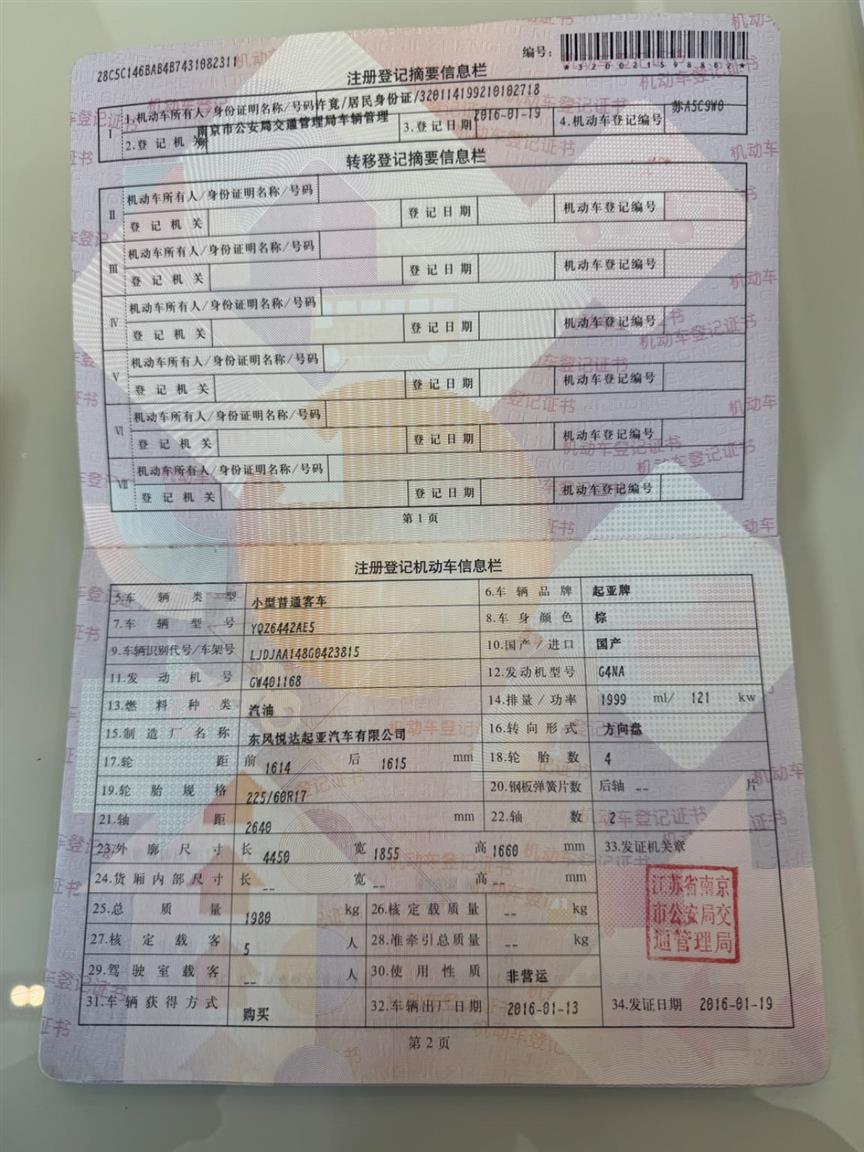 28C5C146BAB4B7431082311
编号：
*320021598862*
注册登记摘要信息栏
I 1.机动车所有人/身份证明名称/号码 许竟/居民身份证/320114199210102718
2.登记机关 南京市公安局交通管理局车辆管理所 3.登记日期 2016-01-19 4.机动车登记编号 苏A5C9W0
转移登记摘要信息栏
II 机动车所有人/身份证明名称/号码
登记机关 登记日期 机动车登记编号
III 机动车所有人/身份证明名称/号码
登记机关 登记日期 机动车登记编号
IV 机动车所有人/身份证明名称/号码
登记机关 登记日期 机动车登记编号
V 机动车所有人/身份证明名称/号码
登记机关 登记日期 机动车登记编号
VI 机动车所有人/身份证明名称/号码
登记机关 登记日期 机动车登记编号
VII 机动车所有人/身份证明名称/号码
登记机关 登记日期 机动车登记编号
第1页
注册登记机动车信息栏
5.车辆类型 小型普通客车 6.车辆品牌 起亚牌
7.车辆型号 YQZ6442AE5 8.车身颜色 棕
9.车辆识别代号/车架号 LJDJAA148G0423815 10.国产/进口 国产
11.发动机号 GW401168 12.发动机型号 G4NA
13.燃料种类 汽油 14.排量/功率 1999 ml/ 121 kw
15.制造厂名称 东风悦达起亚汽车有限公司 16.转向形式 方向盘
17.轮距 前 1614 后 1615 mm 18.轮胎数 4
19.轮胎规格 225/60R17 20.钢板弹簧片数 后轴 -- 片
21.轴距 2640 mm 22.轴数 2
23.外廓尺寸 长 4450 宽 1855 高 1660 mm 33.发证机关章
24.货厢内部尺寸 长 -- 宽 -- 高 -- mm
江苏省南京
市公安局交
通管理局
25.总质量 1980 kg 26.核定载质量 -- kg
27.核定载客 5 人 28.准牵引总质量 -- kg
29.驾驶室载客 -- 人 30.使用性质 非营运
31.车辆获得方式 购买 32.车辆出厂日期 2016-01-13 34.发证日期 2016-01-19
第2页